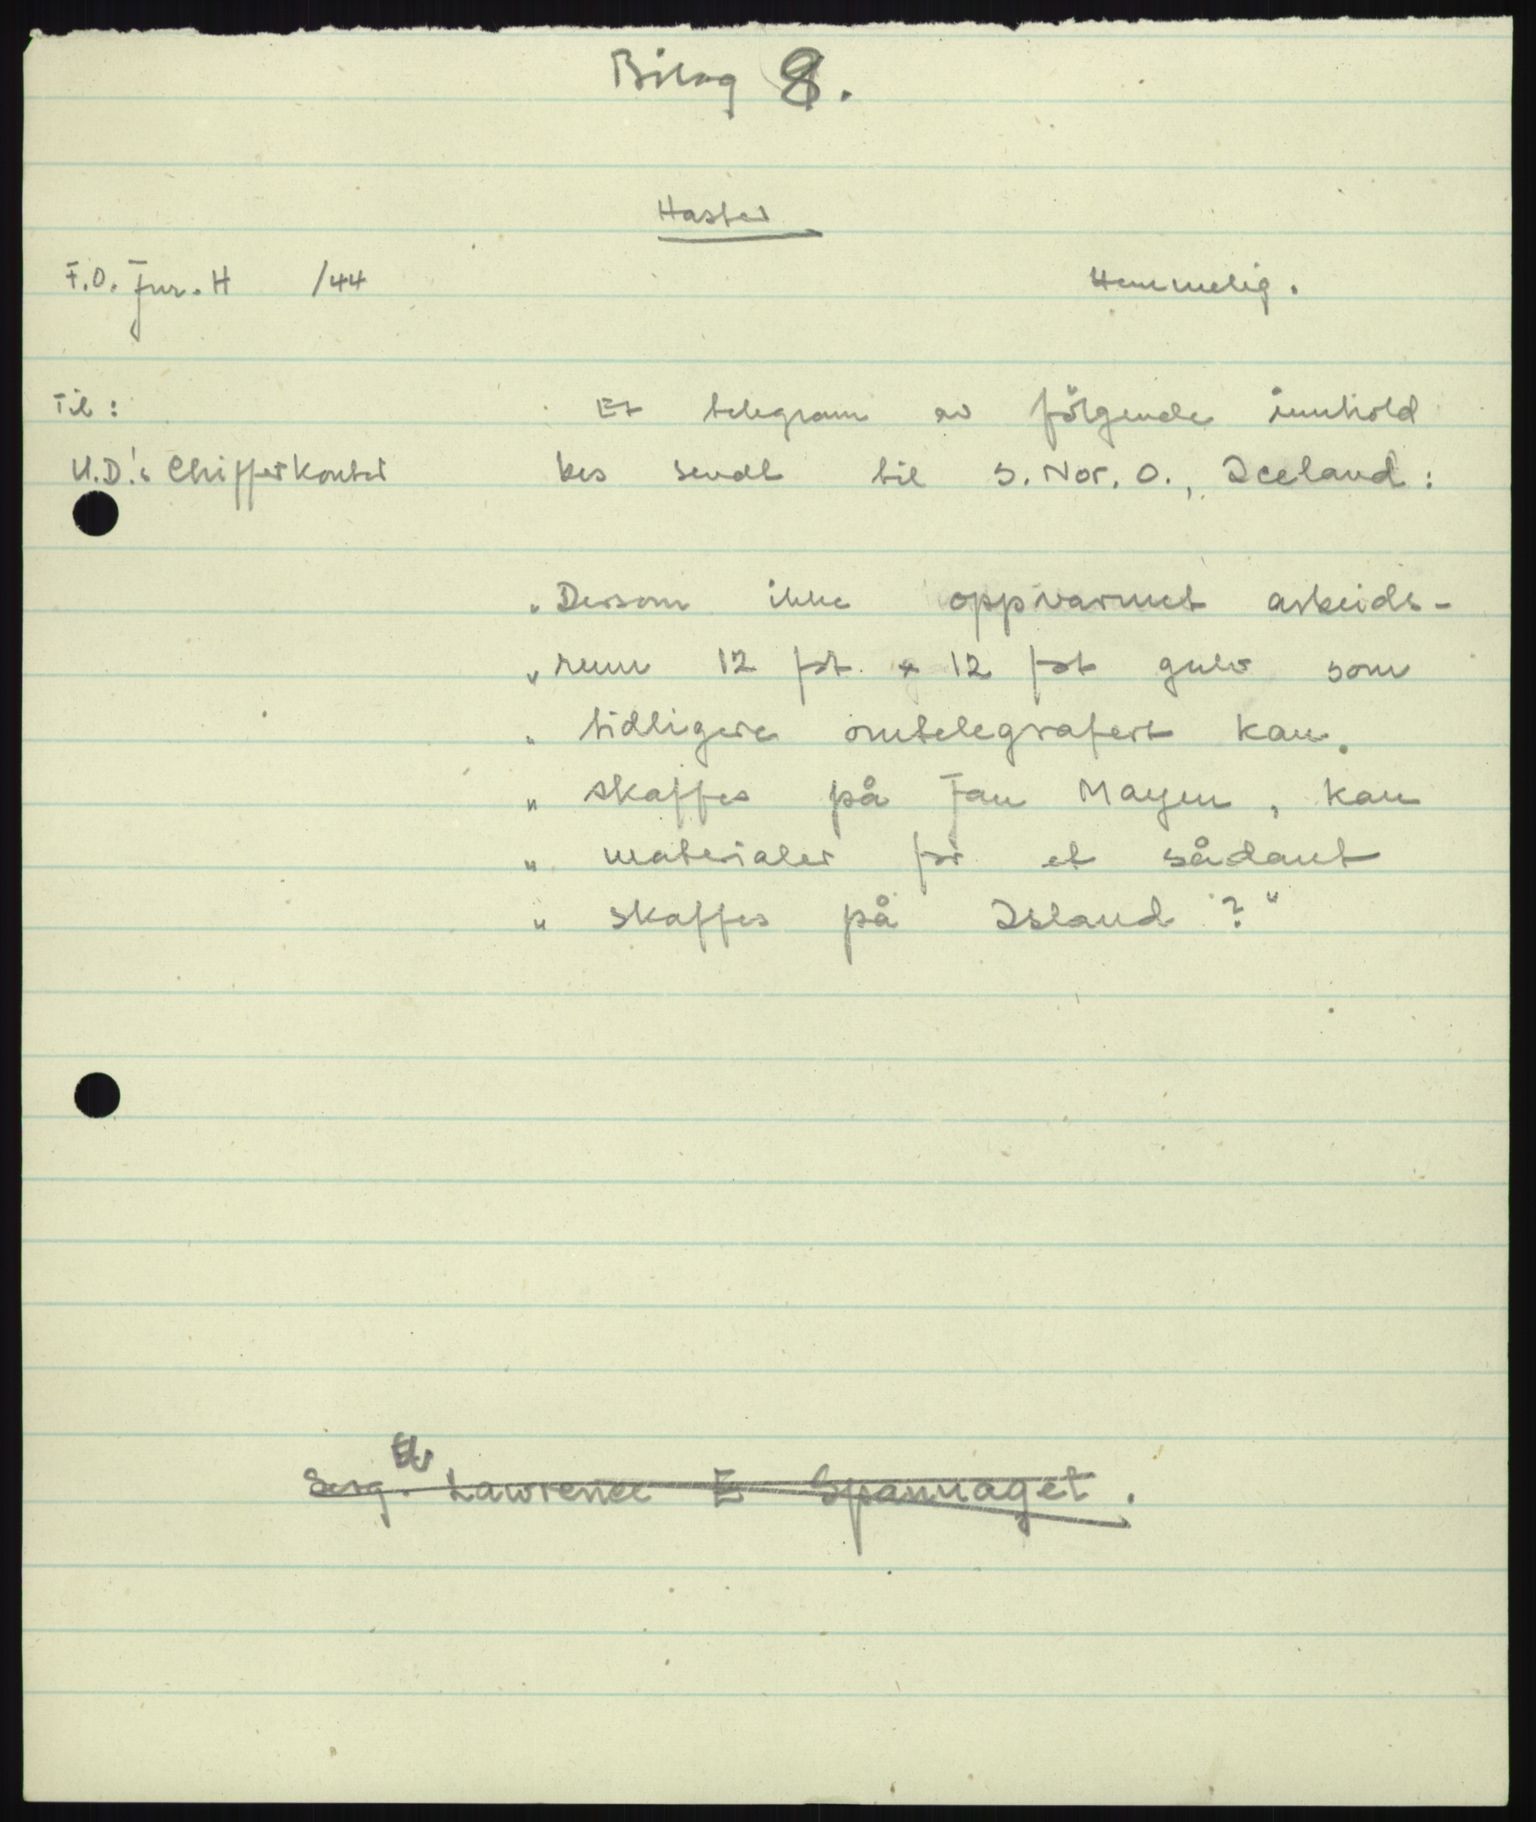 Bilag 8.
Haster
F.O. Jnr. H /44
Hemmelig.
Til :
Et telegram av følgende innhold
U.D.'s Chifferkontor
bes sendt til S. Nor. O., Iceland :
„ Dersom ikke oppvarmet arbeids-
„ rum 12 fot × 12 fot gulv som
„ tidligere omtelegrafert kan
„ skaffes på Jan Mayen , kan
„ materialer for et sådant
„ skaffes på Island ? "
Serg. Lawrence E Spannaget .